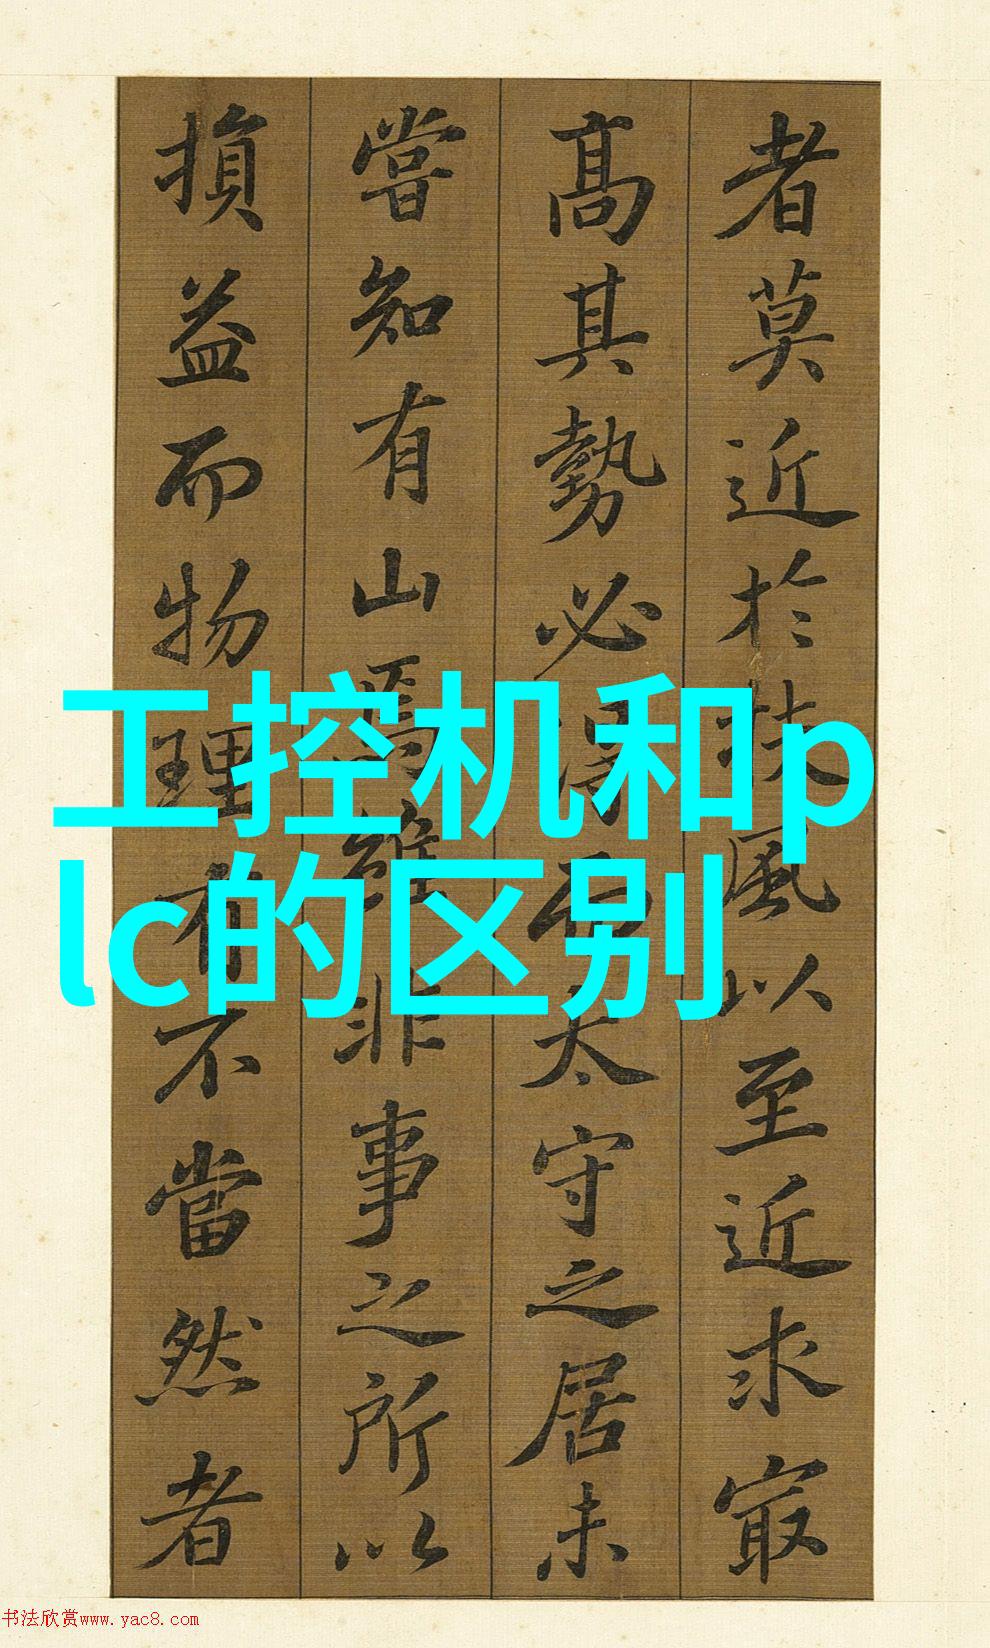 者莫近於扶風以至近求冣
髙其勢必得而太守之居未
嘗知有山焉雖非事之所以
損益而物理有不當然者
工控机和p
lc的区别
书法欣赏www.yac8.com